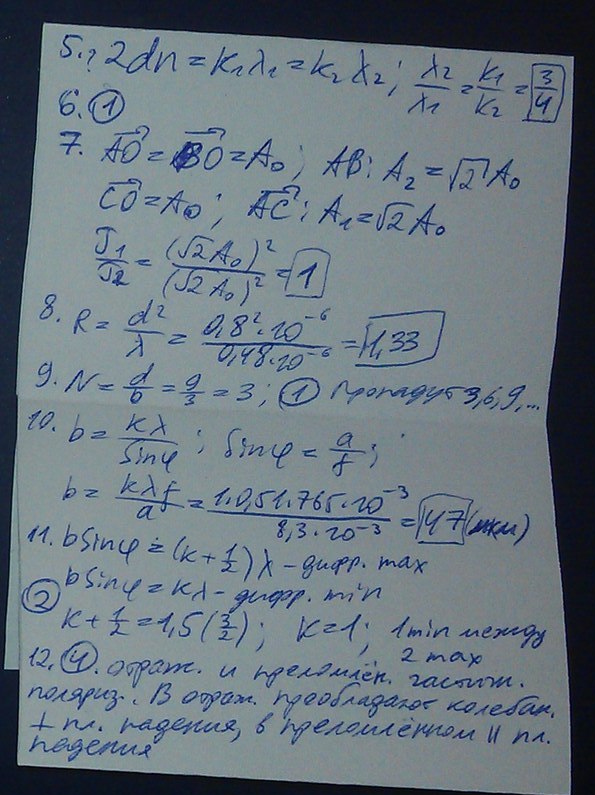 5.? 2dn = k₁λ₁ = k₂λ₂; λ₂/λ₁ = k₁/k₂ = 3/4
6. ①
7. AO = BO = A₀; AB: A₂ = √2 A₀
CO = A₀; AC: A₁ = √2 A₀
J₁/J₂ = (√2 A₀)²/(√2 A₀)² = 1
8. R = d²/λ = 0,8²·10⁻⁶/0,48·10⁻⁶ = 1,33
9. N = d/b = 9/3 = 3; ① пропадут 3,6,9,...
10. b = kλ/sinφ; sinφ = a/f;
b = kλf/a = 1·0,51·765·10⁻³/8,3·10⁻³ = 47 (мкм)
11. b sinφ = (k + 1/2)λ - дифр. max
b sinφ = kλ - дифр. min
② k + 1/2 = 1,5 (3/2); k = 1; 1 min между
2 max
12. ④. отраж. и преломлён. частич.
поляриз. В отраж. преобладают колебан.
⊥ пл. падения, в преломлённом || пл.
падения